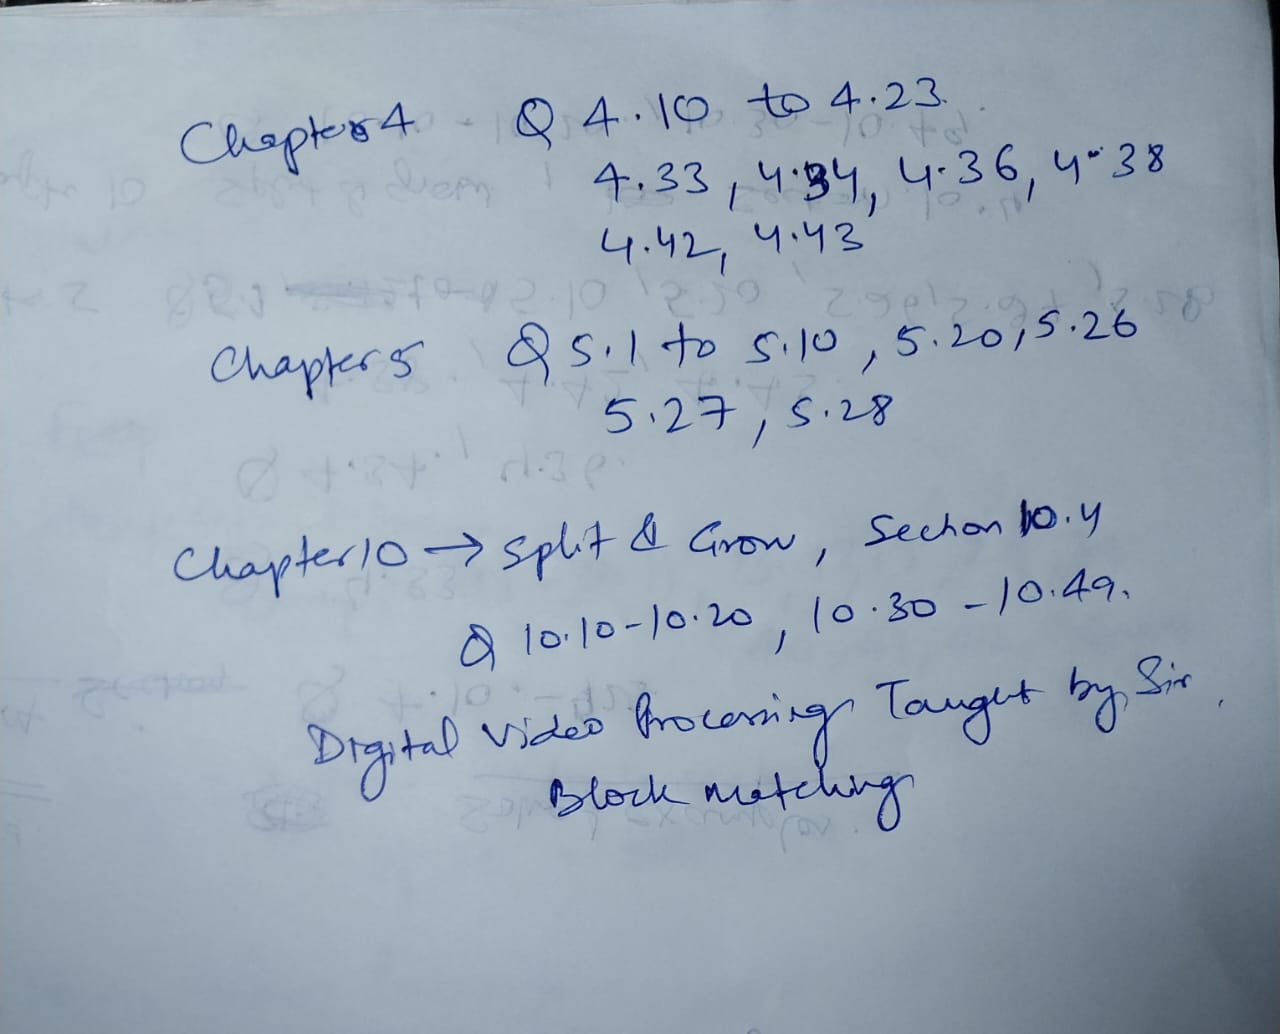 Chapter 4 Q 4.10 to 4.23.
4.33, 4.34, 4.36, 4.38
4.42, 4.43
Chapter 5 Q 5.1 to 5.10, 5.20, 5.26
5.27, 5.28
Chapter 10 → Split & Grow, Section 10.4
Q 10.10-10.20, 10.30-10.49.
Digital Video Processing Taught by Sir.
Block matching